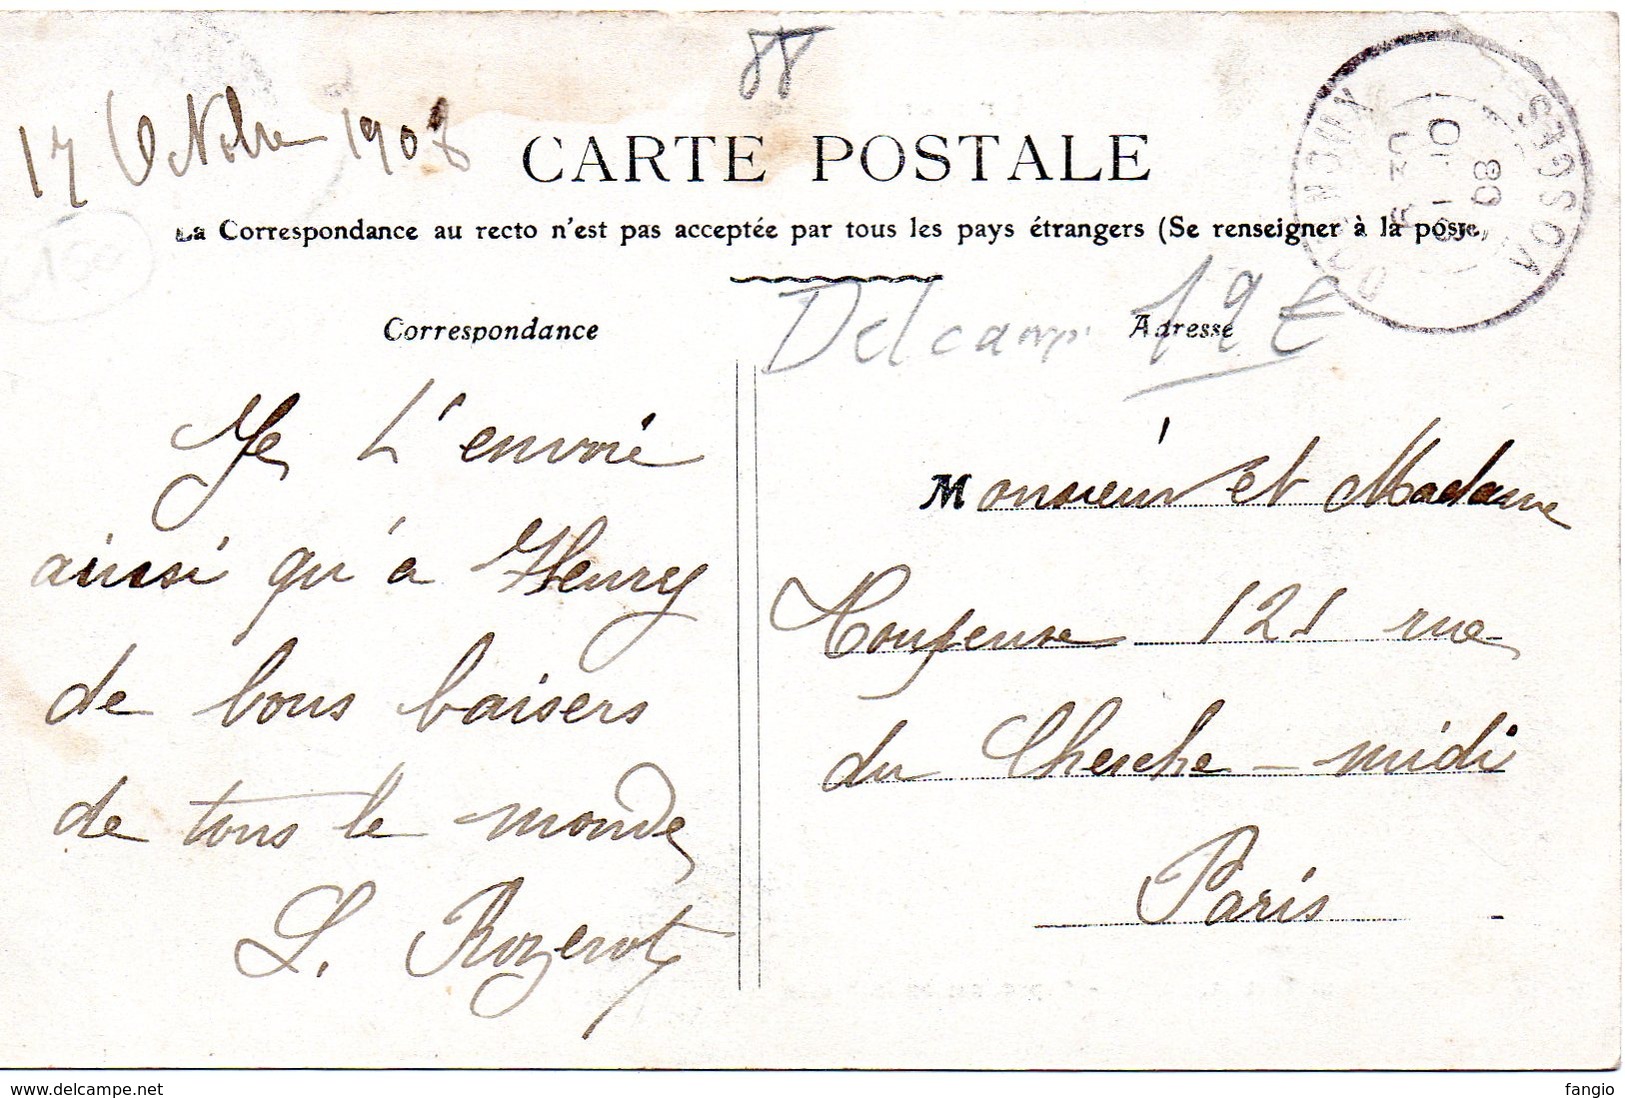 88
17 Octobre 1908
CARTE POSTALE
La Correspondance au recto n'est pas acceptée par tous les pays étrangers (Se renseigner à la poste)
Correspondance
Je t'envoie
ainsi qu'à Henry
de bons baisers
de tous le monde
L. Rozerot
Delcamp 19€
Adresse
Monsieur et Madame
121 rue
du Cherche-midi
Paris
VOSGES
08
www.delcampe.net
fangio